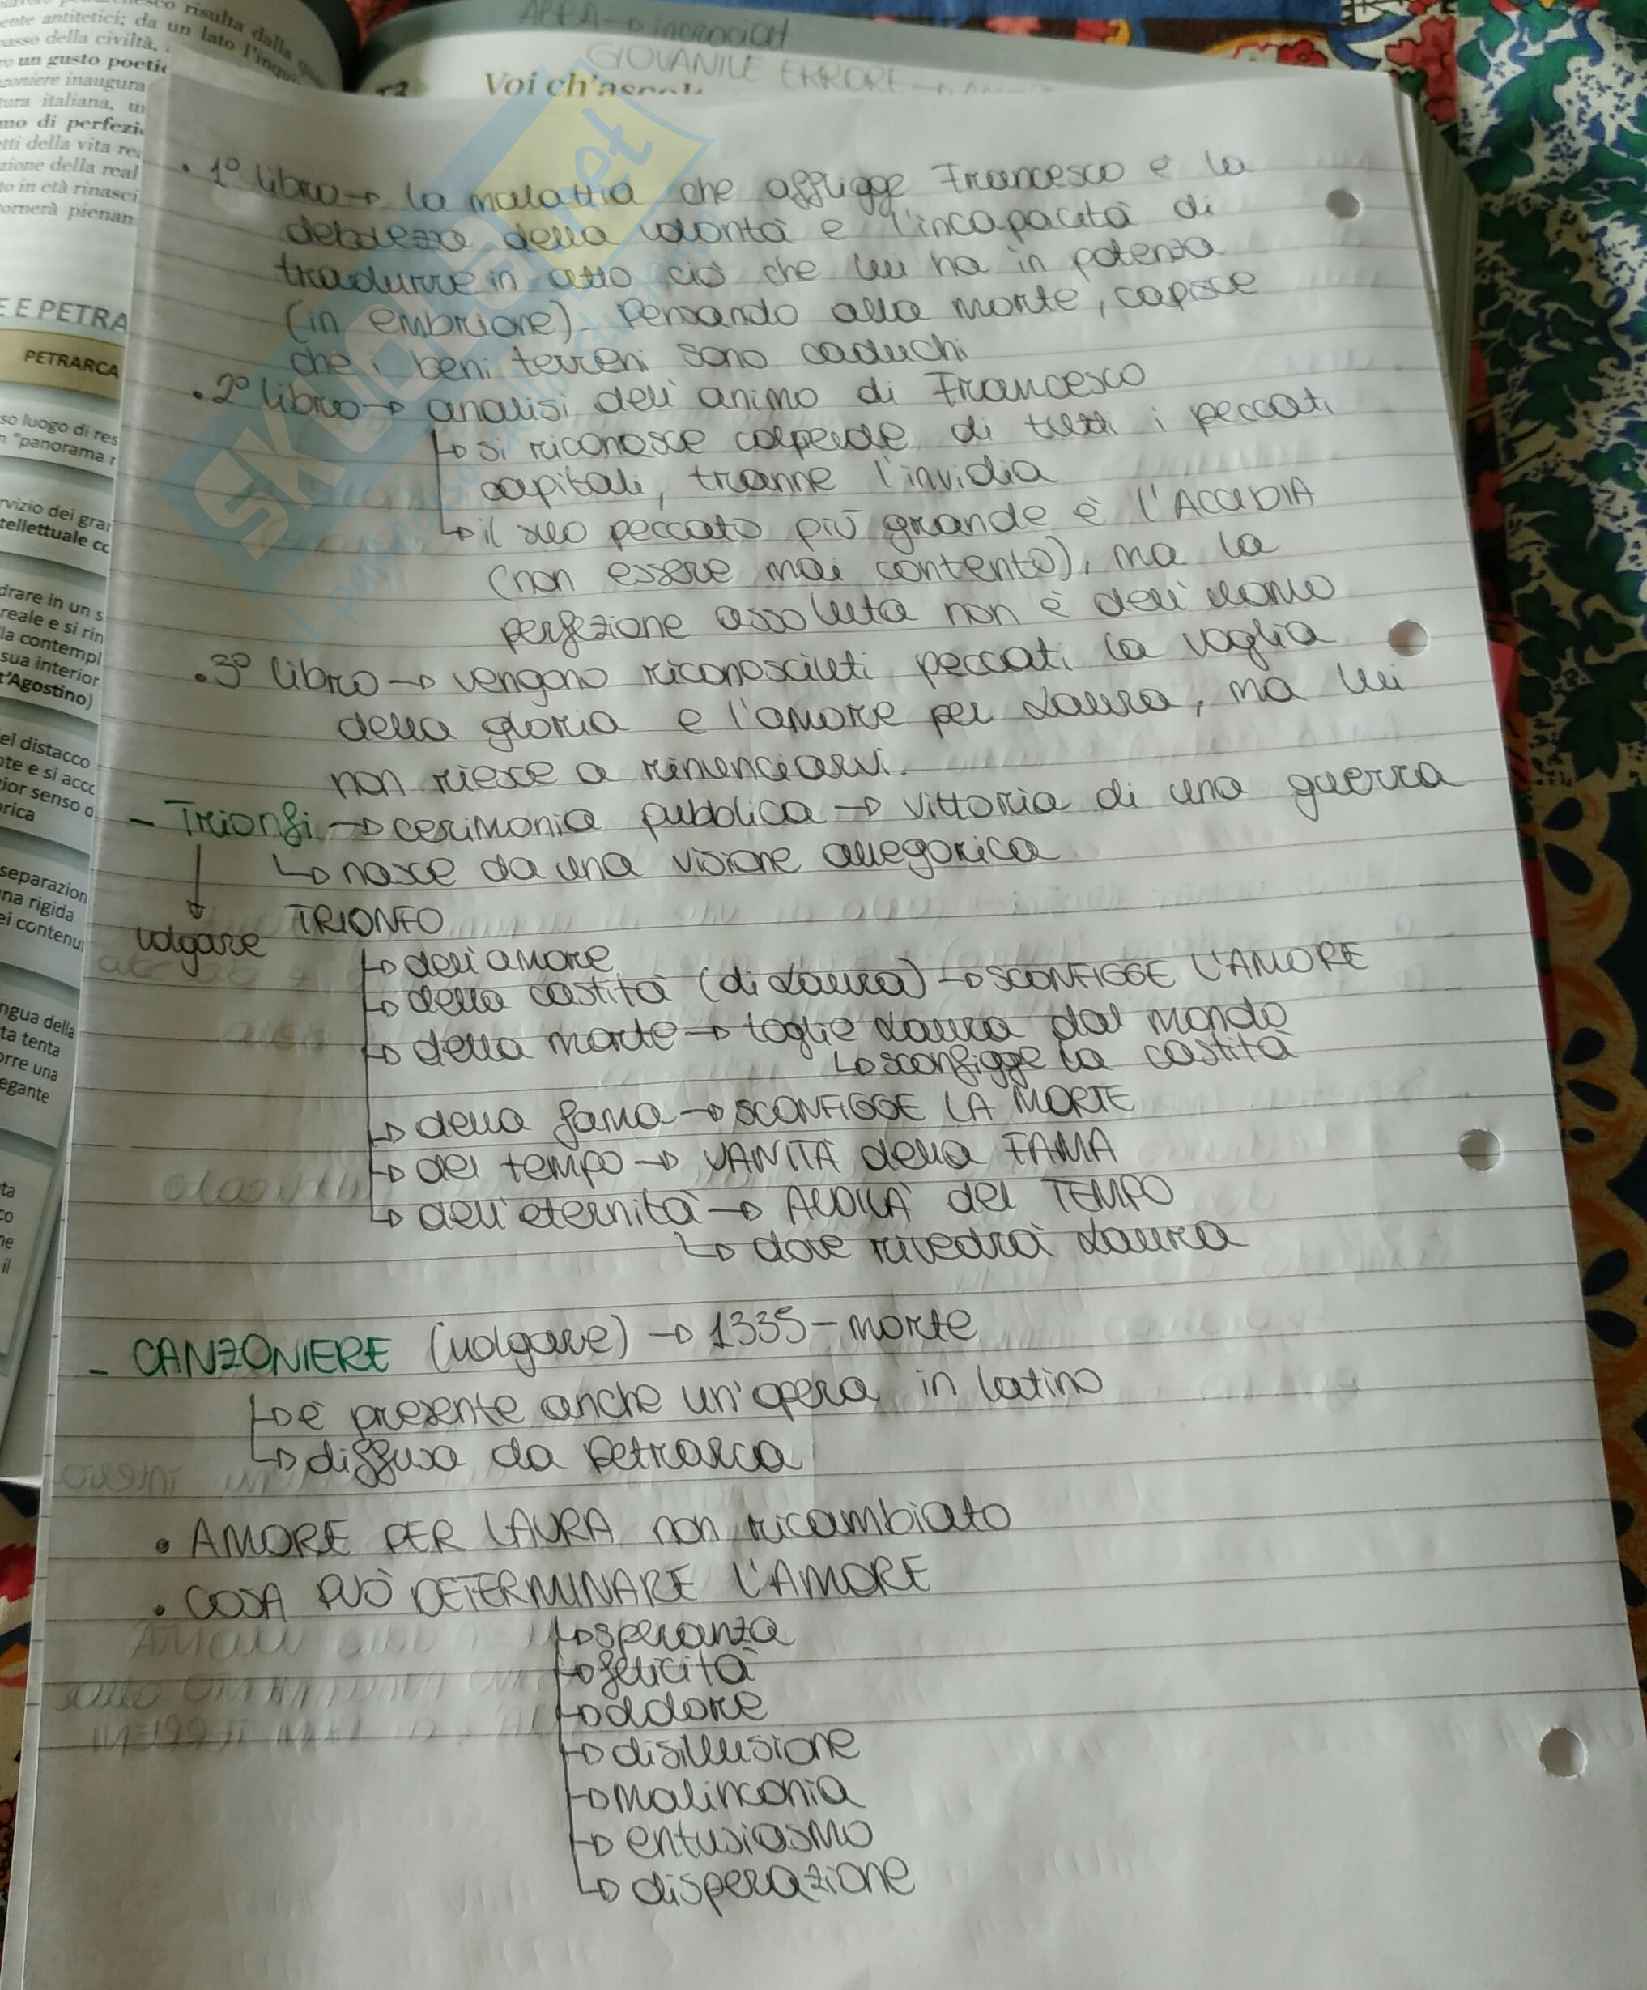 esco risulta dalla
ente antitetici; da un lato l'inqu
asso della civiltà,
un gusto poetic
zoniere inaugura
tura italiana, u
mo di perfezi
tti della vita re
zione della real
to in età rinasci
ornerà pienan
E E PETRA
PETRARCA
so luogo di res
n "panorama r
rvizio dei gran
tellettuale cc
drare in un s
reale e si rin
la contempl
sua interior
t'Agostino)
el distacco
te e si acco
ior senso d
orica
separazion
na rigida
ei contenu
ngua della
ta tenta
orre una
egante
GIOVANILE ERRORE
Voi ch'ascol
SKUOLA.net
• 1° libro → la malattia che affligge Francesco è la
debolezza della volontà e l'incapacità di
tradurre in atto ciò che lui ha in potenza
(in embrione). Pensando alla morte, capisce
che i beni terreni sono caduchi
• 2° libro → analisi dell'animo di Francesco
↳ si riconosce colpevole di tutti i peccati
capitali, tranne l'invidia
↳ il suo peccato più grande è l'ACCIDIA
(non essere mai contento), ma la
perfezione assoluta non è dell'uomo
• 3° libro → vengono riconosciuti peccati la voglia
della gloria e l'amore per Laura, ma lui
non riesce a rinunciarvi.
- Trionfi → cerimonia pubblica → vittoria di una guerra
↳ nasce da una visione allegorica
volgare TRIONFO
↳ dell'amore
↳ della castità (di Laura) → SCONFIGGE L'AMORE
↳ della morte → toglie Laura dal mondo
↳ sconfigge la castità
↳ della fama → SCONFIGGE LA MORTE
↳ del tempo → VANITÀ della FAMA
↳ dell'eternità → ALDILÀ del TEMPO
↳ dove rivedrà Laura
- CANZONIERE (volgare) → 1335 - morte
↳ è presente anche un'opera in latino
↳ diffusa da Petrarca
• AMORE PER LAURA non ricambiato
• COSA PUÒ DETERMINARE L'AMORE
↳ speranza
↳ felicità
↳ dolore
↳ disillusione
↳ malinconia
↳ entusiasmo
↳ disperazione